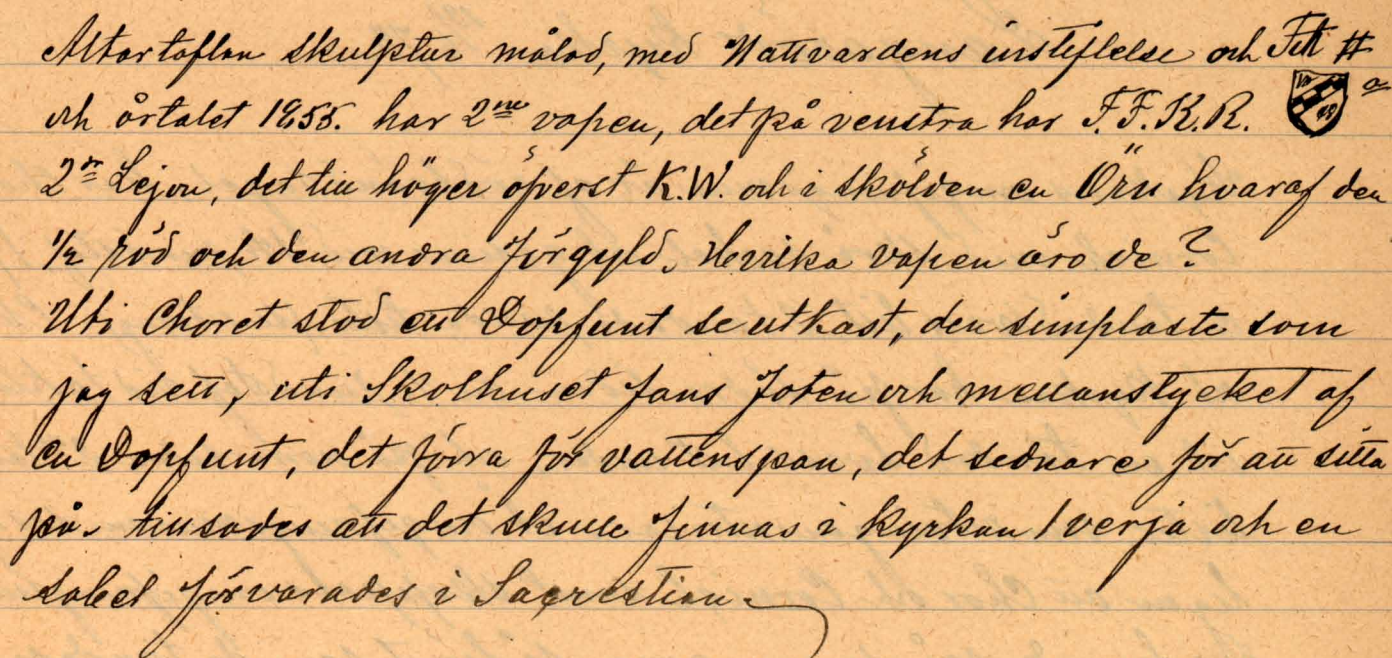 Altartaflan skulptur målad, med Nattvardens instiftelse och
och årtalet 1655. har 2ne vapen, det på venstra har F.F.K.R.
2n Lejon, det till höger öfverst K.W. och i skölden en Örn hvaraf den
1/2 röd och den andra förgyld, Hvilka vapen äro de?
Uti Choret stod en Dopfunt se utkast, den simplaste som
jag sett, uti Skolhuset fans foten och mellanstycket af
en Dopfunt, det förra för vattenspan, det sednare för att sitta
på. tillsades att det skulle finnas i kyrkan 1 verja och en
sabel förvarades i Sacrestian.